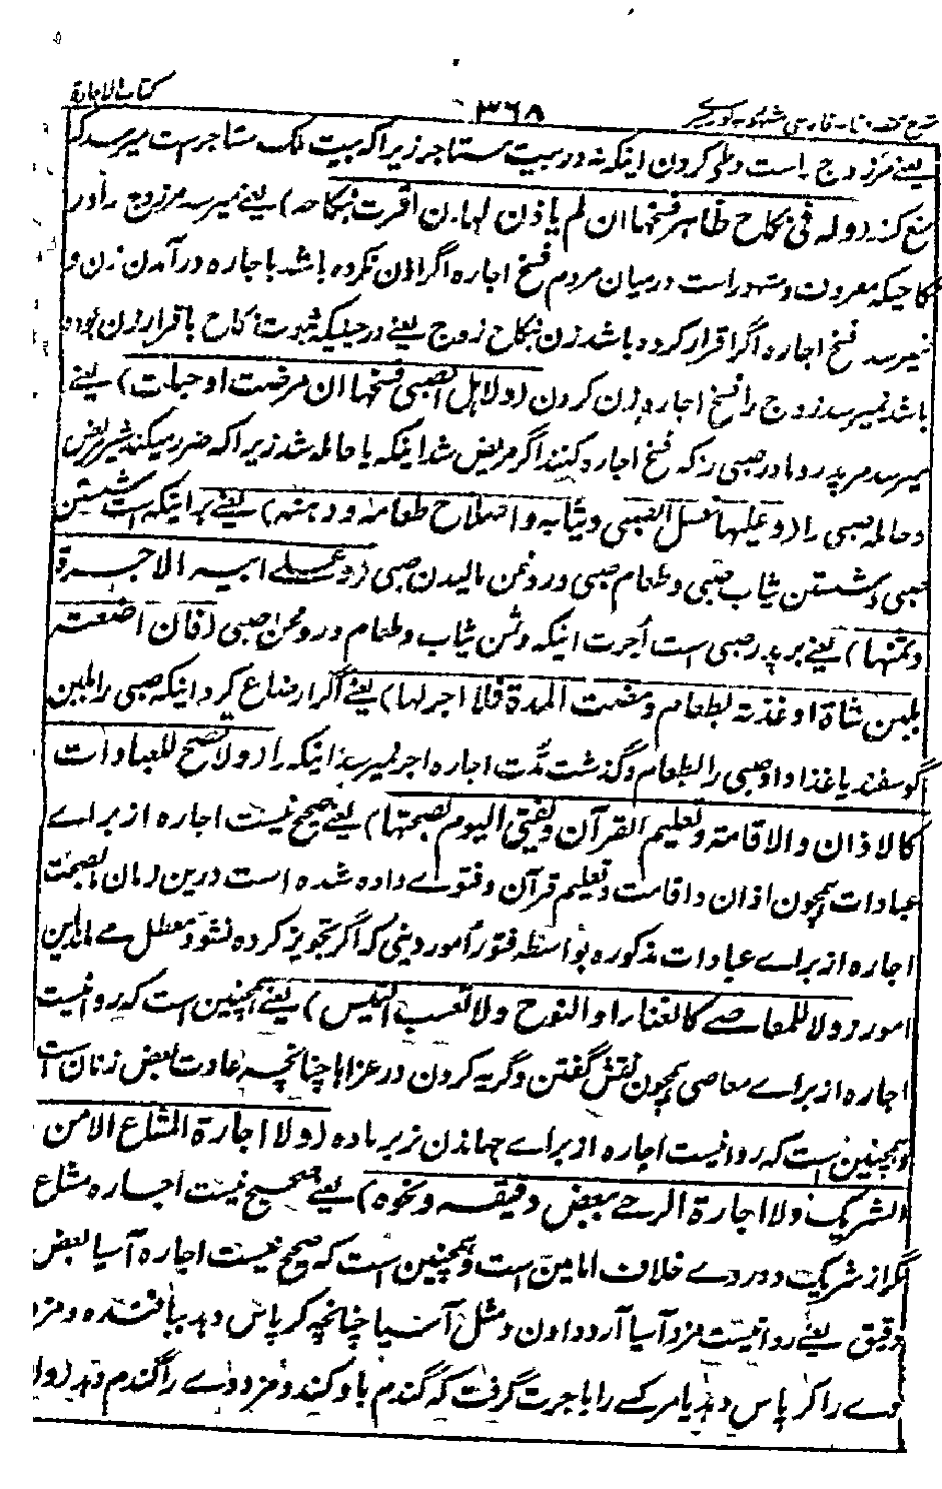 کتاب الاجارة
۳۶۸
شرح مختصر وقایه فارسی
یعنے مر زوج راست وطی کردن اینکه نه در بیت مستاجر زیراکه بیت ملک مستاجر است میرسد که
منع کند (وله فی نکاح ظاہر فسخها ان لم یاذن لها لا ان اقرت بنکاحه) یعنے میرسد مر زوج را در
نکاحیکه معروف و مشهور است درمیان مردم فسخ اجاره اگر اذن نکرده باشد باجاره در آمدن زن و
نمیرسد فسخ اجاره اگر اقرار کرده باشد زن بنکاح زوج یعنے در حالیکه ثبوت نکاح باقرار زن بوده
باشد نمیرسد زوج را فسخ اجاره زن کردن (ولاہل الصبی فسخها ان مرضت او حبلت) یعنے
میرسد مر پدر و مادر صبی را که فسخ اجاره کنند اگر مریض شد اینکه یا حامله شد زیراکه ضرر میکند شیر مریض
و حامله صبی را (وعلیها غسل الصبی وثیابه واصلاح طعامه ودهنه) یعنے بر اینکه است شستن
صبی و شستن ثیاب صبی و طعام صبی و روغن مالیدن صبی (وعلے ابیه الاجرة
وثمنها) یعنے بر پدر صبی است اجرت اینکه و ثمن ثیاب و طعام و روغن صبی (فان ارضعته
بلبن شاة او غذته بطعام ومضت المدة فلا اجر لها) یعنے اگر ارضاع کرد اینکه صبی را بلبن
گوسفند یا غذا داد صبی را بطعام و گذشت مدت اجاره اجر نمیرسد اینکه را (ولا تصح للعبادات
کالاذان والاقامة وتعلیم القرآن ویفتی الیوم بصحتها) یعنے صحیح نیست اجاره از براے
عبادات ہمچون اذان و اقامت و تعلیم قرآن و فتوے داده شده است درین زمان بصحت
اجاره از براے عبادات مذکوره بواسطه فتور امور دینی که اگر تجویز کرده نشود معطل مے ماند این
امور (ولا للمعاصے کالغناء والنوح ولا لعسب التیس) یعنے ہمچنین است که روا نیست
اجاره از براے معاصی ہمچون نقش گفتن و گریه کردن در عزاہا چنانچه عادت بعض زنان است
و ہمچنین است که روا نیست اجاره از براے جهاندن نر بر ماده (ولا اجارة المشاع الا من
الشریک ولا اجارة الرحے ببعض دقیقه ونحوه) یعنے صحیح نیست اجاره مشاع
مگر از شریک و در وے خلاف امامین است و ہمچنین است که صحیح نیست اجاره آسیا ببعض
دقیق یعنے روا نیست مزد آسیا آرد دادن و مثل آسیا چنانچه کرپاس دہد ببافنده و مزد
وے را کرپاس دہد یا مر کسے را باجرت گرفت که گندم باد کند و مزد وے را گندم دہد (ولا